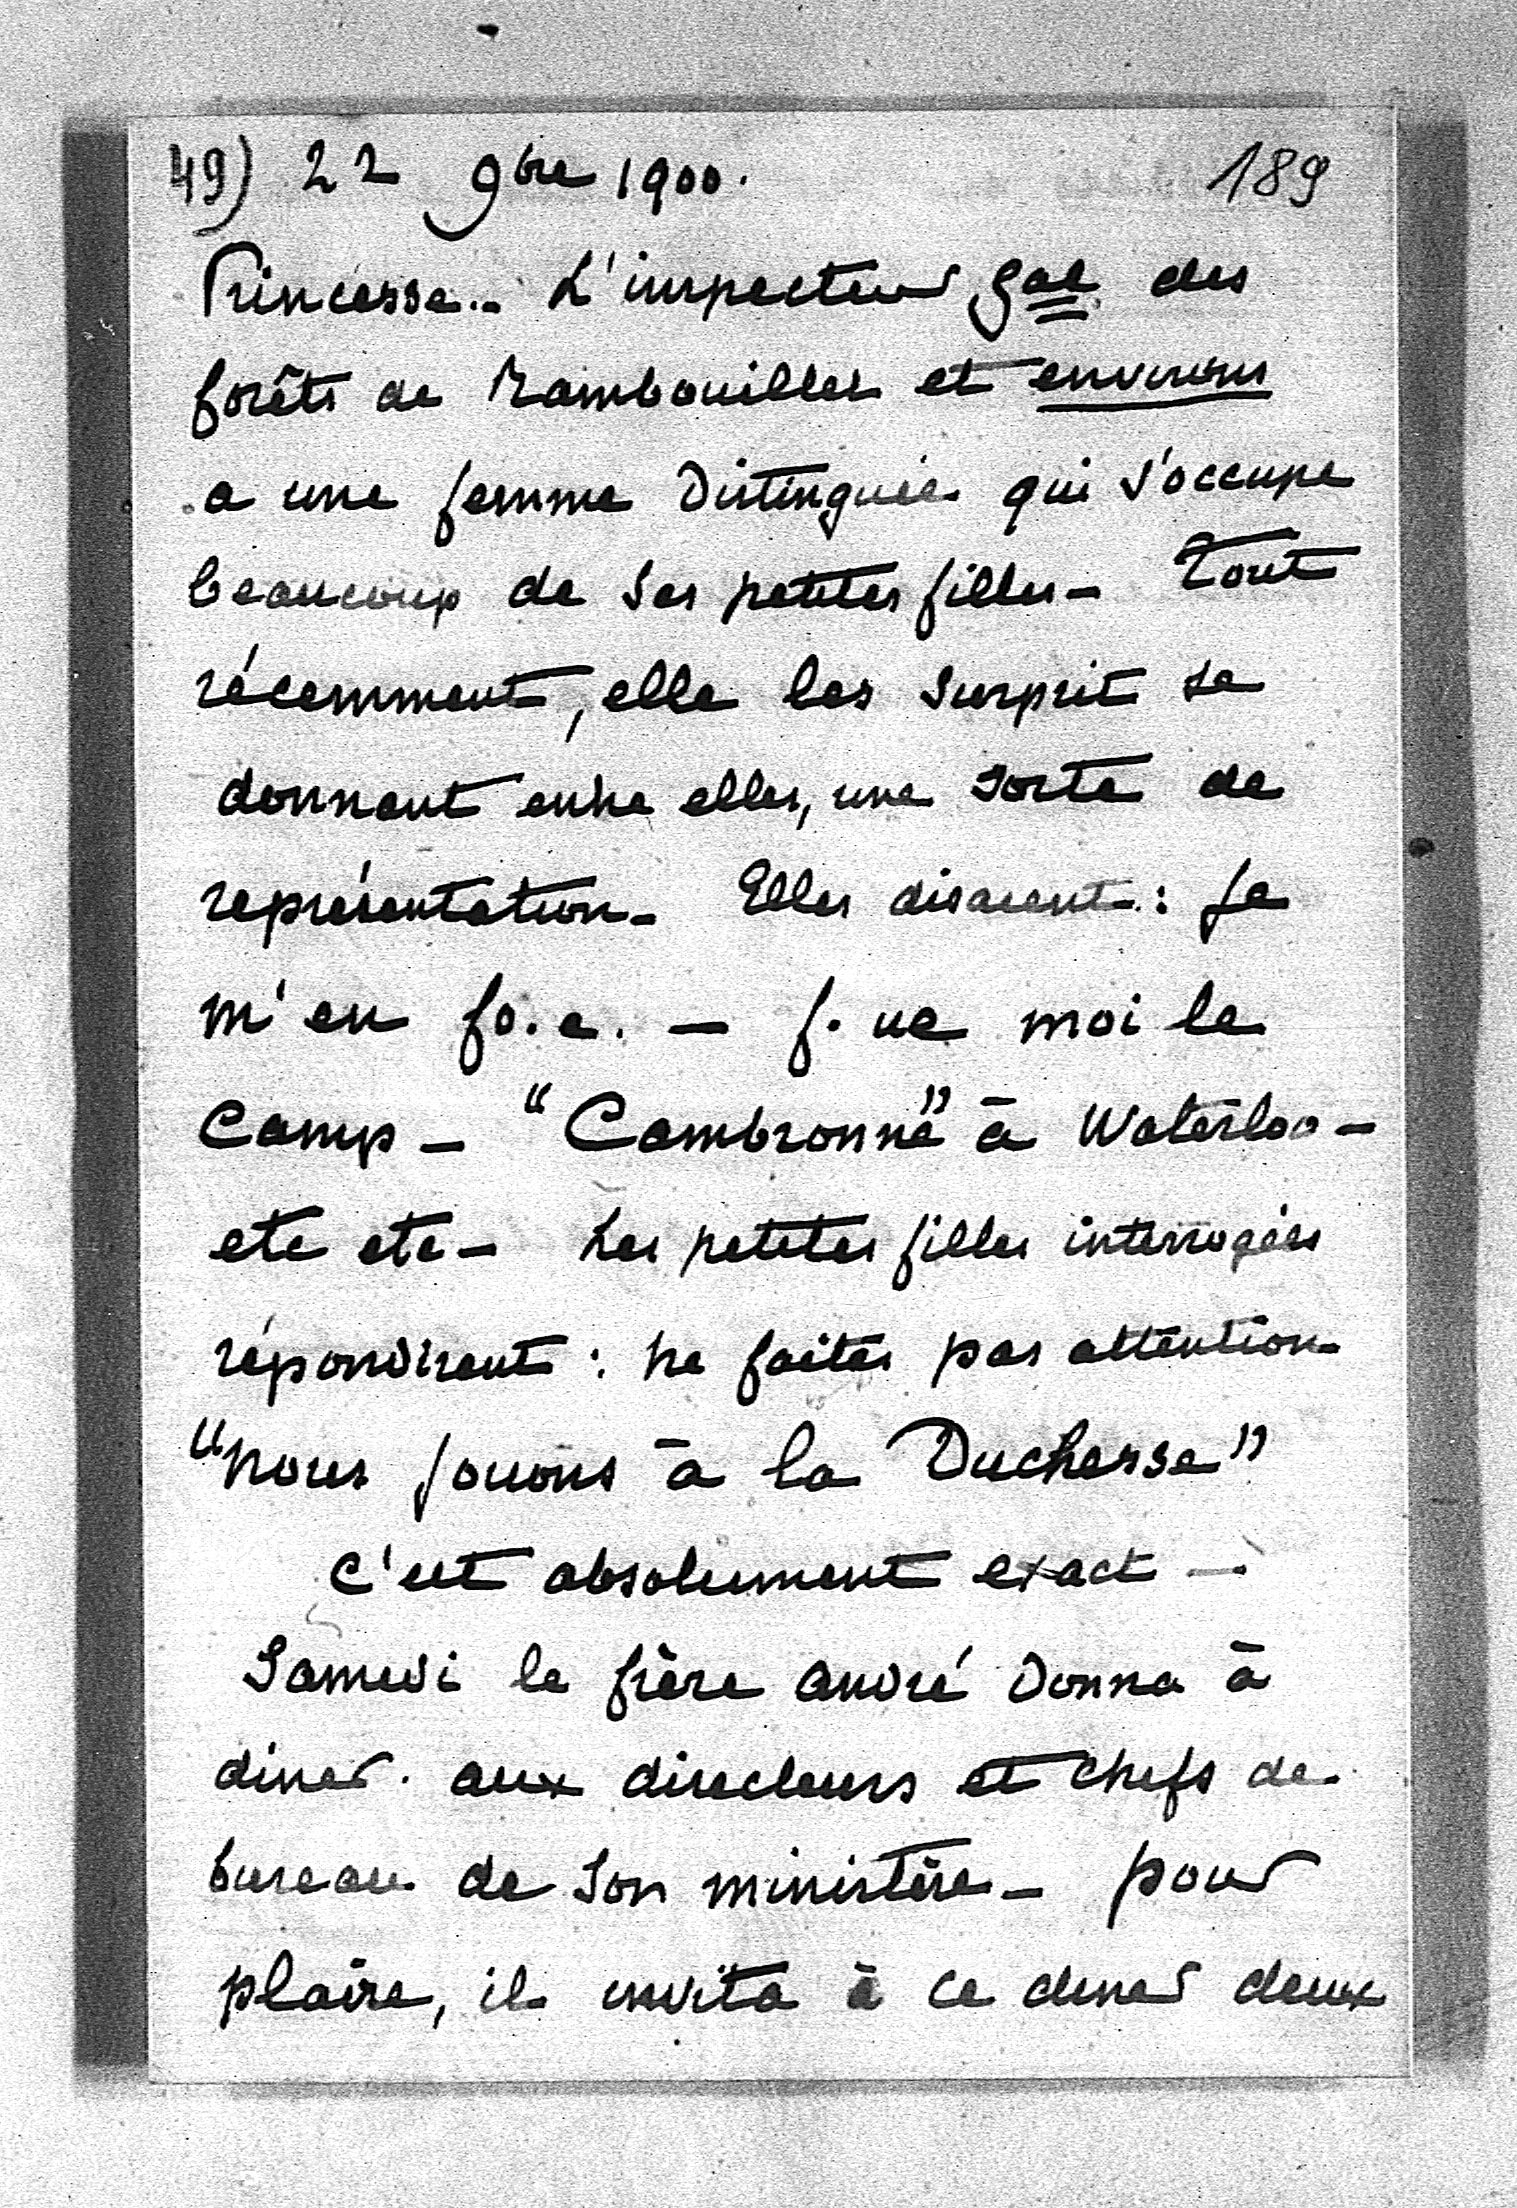 49) 22 9bre 1900. 189
Princesse.. L'inspecteur gal des
forêts de Rambouillet et environs
a une femme distinguée qui s'occupe
beaucoup de ses petites filles - Tout
récemment, elle les surprit se
donnant entre elles, une sorte de
représentation - Elles disaient : Je
m'en fo.e. - f. ue moi le
camp - "Cambronne" à Waterloo -
etc etc - Les petites filles interrogées
répondirent : ne faites pas attention -
"nous jouons à la Duchesse"
c'est absolument exact -
Samedi le frère andré donna à
diner. aux directeurs et chefs de
bureau de son ministère - pour
plaire, il invita à ce diner deux